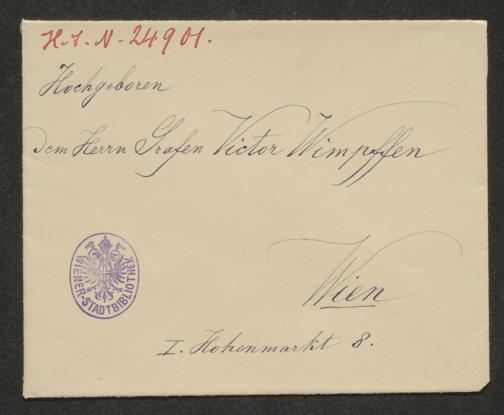 H.I.N-24901.
Hochgeboren
Dem Herrn Grafen Victor Wimpffen
WIENER-STADTBIBLIOTHEK
Wien
I. Hohenmarkt 8.